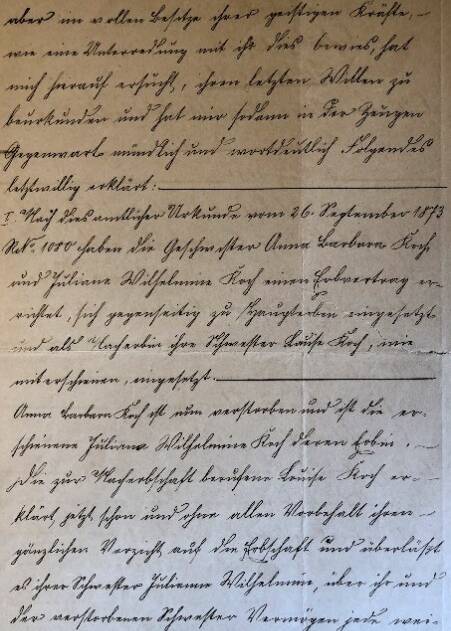 aber im vollen Besitze ihrer geistigen Kräfte, –
wie eine Unterredung mit ihr dies bewies, hat
mich hierauf ersucht, ihren letzten Willen zu
beurkunden und hat mir sodann in der Zeugen
Gegenwart mündlich und wortdeutlich Folgendes
letztwillig erklärt:
I. Nach diesamtlicher Urkunde vom 26. September 1873
RNo. 1080 haben die Geschwister Anna Barbara Koch
und Juliane Wilhelmine Koch einen Erbvertrag er-
richtet, sich gegenseitig zu Haupterben eingesetzt
und als Nacherbin ihre Schwester Louise Koch, wie
miterschienen, eingesetzt.
Anna Barbara Koch ist nun verstorben und ist die er-
schienene Juliana Wilhelmine Koch deren Erbin. –
Die zur Nacherbschaft berufene Louise Koch er-
klärt jetzt schon und ohne allen Vorbehalt ihren
gänzlichen Verzicht auf die Erbschaft und überläßt
es ihrer Schwester Julianne Wilhelmine, über ihr und
der verstorbenen Schwester Vermögen jede wei-